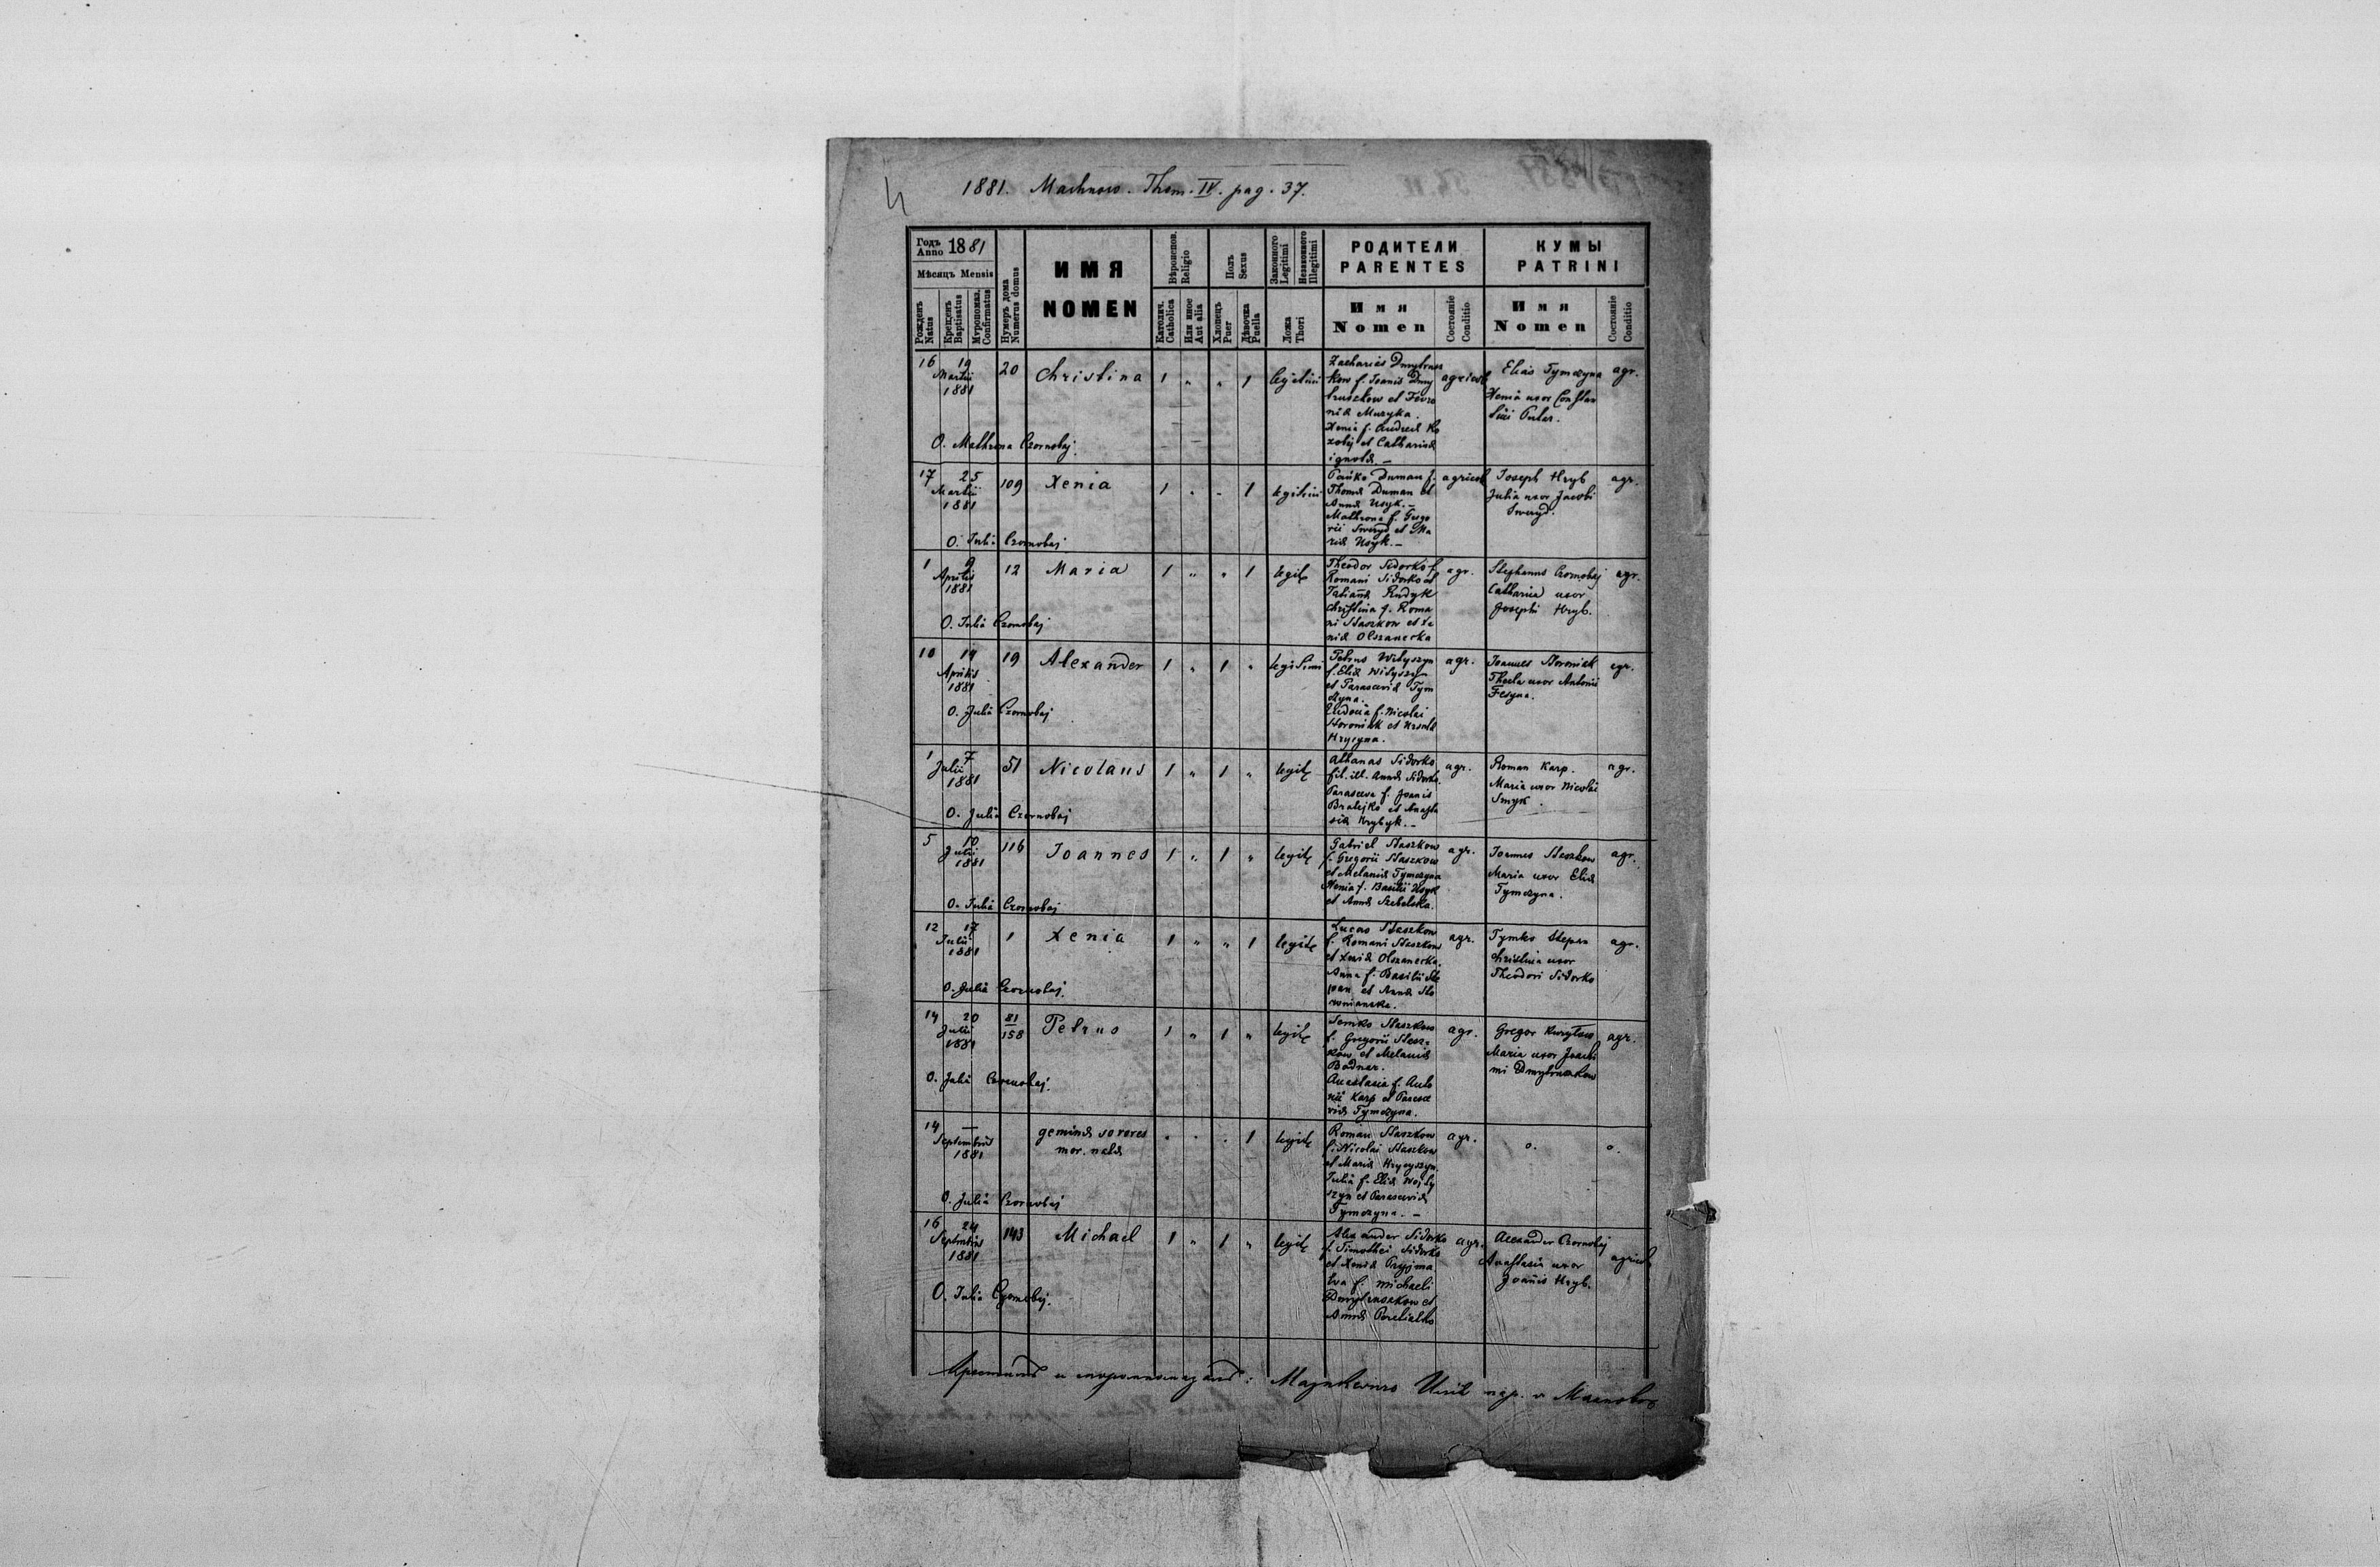 1881. Machnow. Thom. IV. pag. 37.
Годъ Anno 1881
Мѣсяцъ Mensis
Рожденъ Natus
Крещенъ Baptisatus
Мѵропомаз. Confirmatus
Нумеръ дома Numerus domus
ИМЯ
NOMEN
Вѣроиспов. Religio
Католич. Catholica
Или иное Aut alia
Полъ Sexus
Хлопецъ Puer
Дѣвочка Puella
Законного Legitimi
Незаконного Illegitimi
Ложа Thori
РОДИТЕЛИ
PARENTES
Имя
Nomen
Состояніе Conditio
КУМЫ
PATRINI
Имя
Nomen
Состояніе Conditio
16 19 Martii 1881 20 Christina 1 " " 1 legitimi
Zacharias Dmytrusz
kow f. Joanis Dmy
truszkow et Fevro
nia Muzyka.
Xenia f. Andreä Ko
zobij et Catharinä
ignotä. —
agricol
Elias Tymczyna agr.
Xenia uxor Constan
tini Putar.
O. Mathrona Czornobaj.
17 25 Martii 1881 109 Xenia 1 " " 1 legitimi
Pańko Duman f. agricol
Thomä Duman et
Annä Usyk. —
Mathrona f. Grego
rii Sweryd et Ma
riä Usyk. —
Joseph Hryb agr.
Julia uxor Jacobi
Sweryd.
O. Julia Czornobaj
1 9 Aprilis 1881 12 Maria 1 " " 1 legit
Theodor Sidorko f. agr.
Romani Sidorko et
Tatiannä Rudyk
Christina f. Roma
ni Staszkow et Xe
niä Olszanecka
Stephanus Czornobaj agr.
Catharina uxor
Josephi Hryb.
O. Julia Czornobaj
10 14 Aprilis 1881 19 Alexander 1 " 1 " legitimi
Petrus Wityszyn agr.
f. Eliä Wityszyn
et Parascevia Tym
czyna.
Eudocia f. Nicolai
Horoniak et
Hrycyna.
Joannes Horoniak agr.
Thecla uxor Antonii
Fesyna.
O. Julia Czornobaj
1 7 Julii 1881 51 Nicolaus 1 " 1 " legit
Athanas Sidorko agr.
fil. ill. Annä Sidorko.
Parasceva f. Joanis
Bratejko et Anasta
siä Hrybyk. —
Roman Karp. agr.
Maria uxor Nicolai
Smyk.
O. Julia Czornobaj
5 10 Julii 1881 116 Joannes 1 " 1 " legit
Gabriel Staszkow agr.
f. Gregorii Staszkow
et Melaniä Tymczyna
Xenia f. Basilii Usyk
et Annä Szebelska.
Joannes Staszkow agr.
Maria uxor Eliä
Tymczyna.
O. Julia Czornobaj
12 17 Julii 1881 1 Xenia 1 " " 1 legit
Lucas Staszkow
f. Romani Staszkow agr.
et Xeniä Olszanecka.
Anna f. Basilii Ste
pan et Annä Slo
wianska.
Tymko Stepan agr.
Christina uxor
Theodori Sidorko
O. Julia Czornobaj.
14 20 Julii 1881 81/158 Petrus 1 " 1 " legit
Semko Staszkow agr.
f. Gregorii Stasz=
kow et Melaniä
Bodnar.
Anastasia f. Anto
nii Karp et Parasce
viä Tymczyna.
Gregor agr.
Maria uxor Joachi
mi Dmytruszkow
O. Julia Czornobaj.
14 — Septembris 1881 geminä sorores . . . 1 legit
mor. natä
Roman Staszkow agr.
f. Nicolai Staszkow
et Mariä Hrycyszyn.
Julia f. Eliä Wojty
szyn et Parasceviä
Tymczyna. —
o. o.
O. Julia Czornobaj
16 24 Septembris 1881 143 Michael 1 " 1 " legit
Alexander Sidorko agr.
f. Timothei Sidorko
et Xeniä Pryjma
Eva f. Michaeli
Dmytruszkow et
Annä
Alexander Czornobaj
Anastasia uxor agricol
Joanis Hryb.
O. Julia Czornobaj.